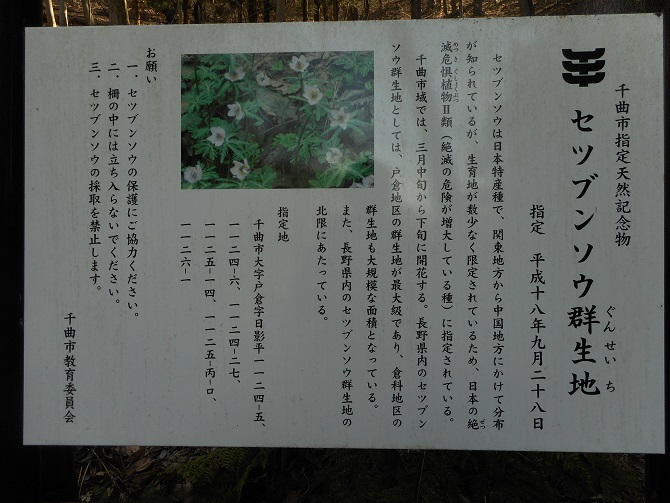 千曲市指定天然記念物
セツブンソウ群生地
ぐんせいち
指定 平成十八年九月二十八日
セツブンソウは日本特産種で、関東地方から中国地方にかけて分布
が知られているが、生育地が数少なく限定されているため、日本の絶
ぜつ
滅危惧植物Ⅱ類（絶滅の危険が増大している種）に指定されている。
めつきぐしょくぶつ
千曲市域では、三月中旬から下旬に開花する。長野県内のセツブン
ソウ群生地としては、戸倉地区の群生地が最大級であり、倉科地区の
群生地も大規模な面積となっている。
また、長野県内のセツブンソウ群生地の
北限にあたっている。
指定地
千曲市大字戸倉字日影平一一二四-五、
一一二四-六、一一二四-二七、
一一二五-一四、一一二五-丙-ロ、
一一二六-一
お願い
一、セツブンソウの保護にご協力ください。
二、柵の中には立ち入らないでください。
三、セツブンソウの採取を禁止します。
千曲市教育委員会